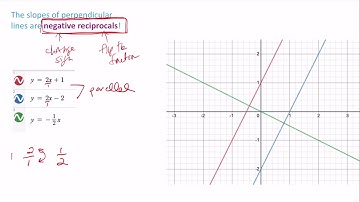 The slopes of perpendicular
lines are negative reciprocals!
change sign
flip the fraction
y = 2x + 1
y = 2x − 2
parallel
y = −1/2 x
2/1 1/2
-3 -2 -1 0 1 2 3
2
1
-1
-2